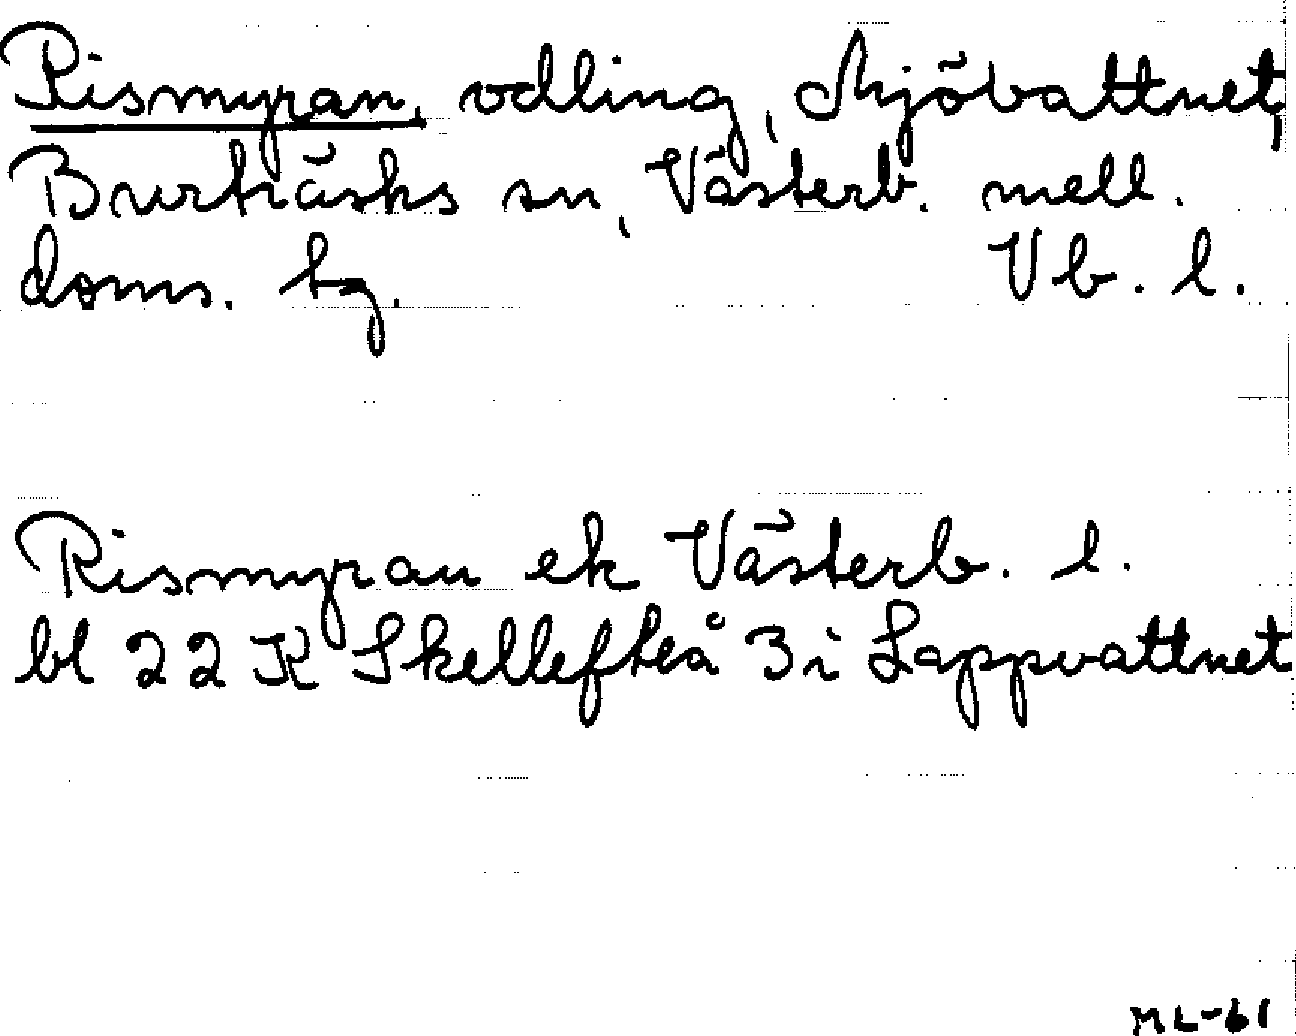 Rismyran, odling, Mjövattnet,
Burträsks sn, Västerb. mell.
doms. tg. Vb. l.
Rismyran ek Västerb. l.
bl 22 K Skellefteå 3 i Lappvattnet
ML-61